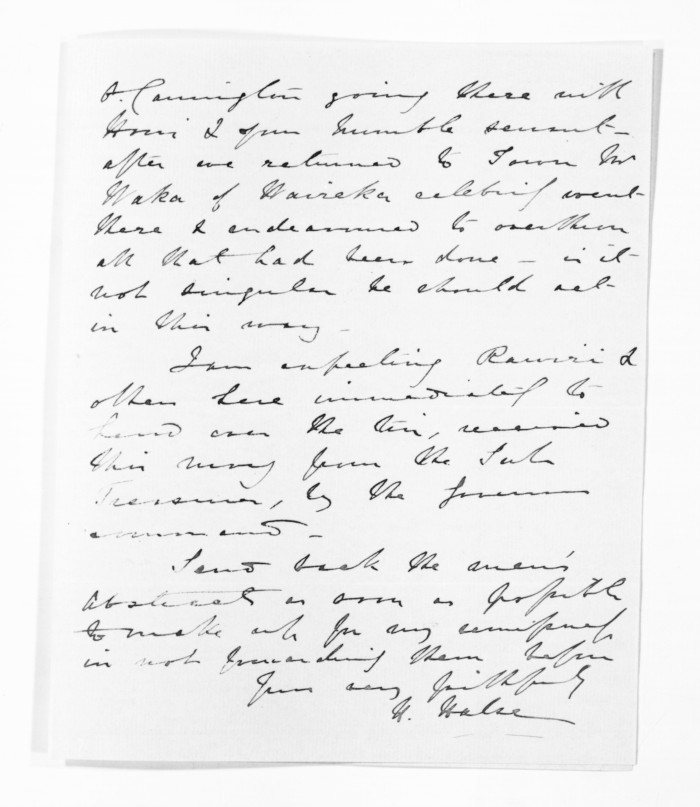 O. Carrington going there with
Honi & your humble servant -
after we returned to Town Mr
Waka of Waireka celebrity went
there & endeavoured to overthrow
all that had been done - is it
not singular he should act
in this way -
I am expecting Rawiri &
others here immediately to
hand over the tin, received
this morng from the Sub
Treasurer, by the Governors
command -
Send back the men's
abstracts as soon as possible
to make up for my remissness
in not forwarding them before
Yours very faithfully
H. Halse